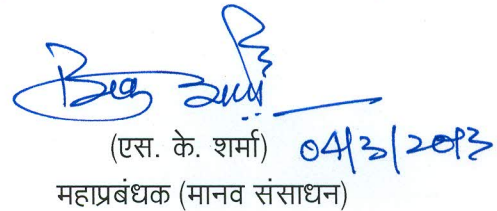 (एस. के. शर्मा) 04/3/2013
महाप्रबंधक (मानव संसाधन)